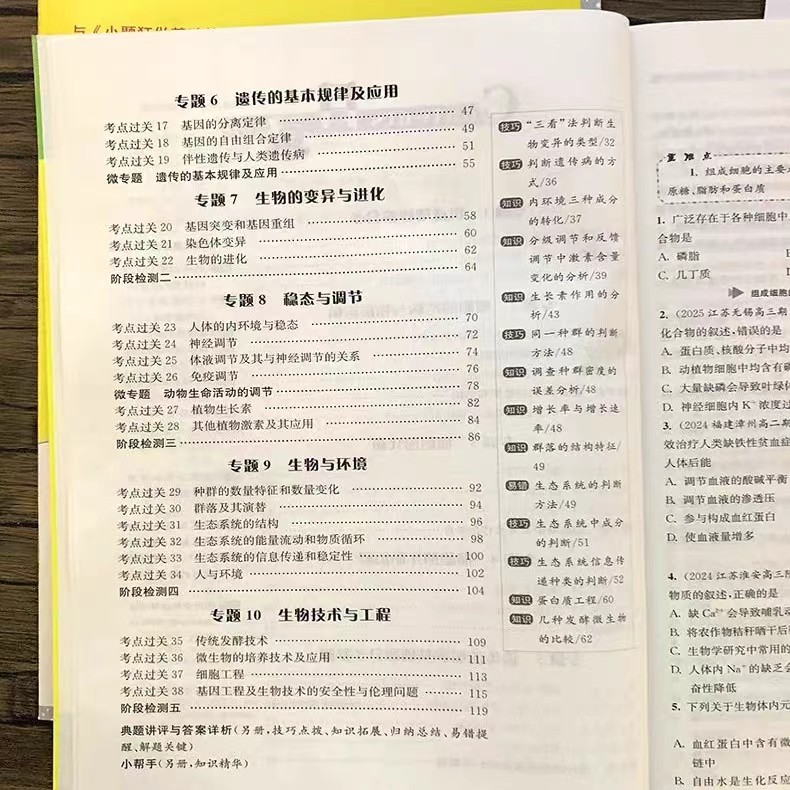 与《小题狂做
专题 6 遗传的基本规律及应用
考点过关 17 基因的分离定律 47
考点过关 18 基因的自由组合定律 49
考点过关 19 伴性遗传与人类遗传病 51
微专题 遗传的基本规律及应用 55
专题 7 生物的变异与进化
考点过关 20 基因突变和基因重组 58
考点过关 21 染色体变异 60
考点过关 22 生物的进化 62
阶段检测二 64
专题 8 稳态与调节
考点过关 23 人体的内环境与稳态 70
考点过关 24 神经调节 72
考点过关 25 体液调节及其与神经调节的关系 74
考点过关 26 免疫调节 76
微专题 动物生命活动的调节 78
考点过关 27 植物生长素 82
考点过关 28 其他植物激素及其应用 84
阶段检测三 86
专题 9 生物与环境
考点过关 29 种群的数量特征和数量变化 92
考点过关 30 群落及其演替 94
考点过关 31 生态系统的结构 96
考点过关 32 生态系统的能量流动和物质循环 98
考点过关 33 生态系统的信息传递和稳定性 100
考点过关 34 人与环境 102
阶段检测四 104
专题 10 生物技术与工程
考点过关 35 传统发酵技术 109
考点过关 36 微生物的培养技术及应用 111
考点过关 37 细胞工程 113
考点过关 38 基因工程及生物技术的安全性与伦理问题 115
阶段检测五 119
典题讲评与答案详析(另册,技巧点拨、知识拓展、归纳总结、易错提
醒、解题关键)
小帮手(另册,知识精华)
技巧 “三看”法判断生
物变异的类型/32
技巧 判断遗传病的方
式/36
知识 内环境三种成分
的转化/37
知识 分级调节和反馈
调节中激素含量
变化的分析/39
知识 生长素作用的分
析/43
技巧 同一种群的判断
方法/48
知识 调查种群密度的
误差分析/48
知识 增长率与增长速
率/48
知识 群落的结构特征/
49
易错 生态系统的判断
方法/49
技巧 生态系统中成分
的判断/51
技巧 生态系统信息传
递种类的判断/52
知识 蛋白质工程/60
知识 几种发酵微生物
的比较/62
重难点
1. 组成细胞的主要
原糖、脂肪和蛋白质
1. 广泛存在于各种细胞中
合物是
A. 磷脂
C. 几丁质
组成细胞的
2. (2025江苏无锡高三期
化合物的叙述,错误的是
A. 蛋白质、核酸分子中均
B. 动植物细胞中均含有
C. 大量缺磷会导致叶绿体
D. 神经细胞内 K⁺ 浓度过
3. (2024福建漳州高二期
效治疗人类缺铁性贫血症
人体后能
A. 调节血液的酸碱平衡
B. 调节血液的渗透压
C. 参与构成血红蛋白
D. 使血液量增多
4. (2024江苏淮安高三
物质的叙述,正确的是
A. 缺 Ca²⁺ 会导致哺乳动
B. 将农作物秸秆晒干后
C. 生物学研究中常用的
D. 人体内 Na⁺ 的缺乏会
奋性降低
5. 下列关于生物体内元
A. 血红蛋白中含有微
链中
B. 自由水是生化反应